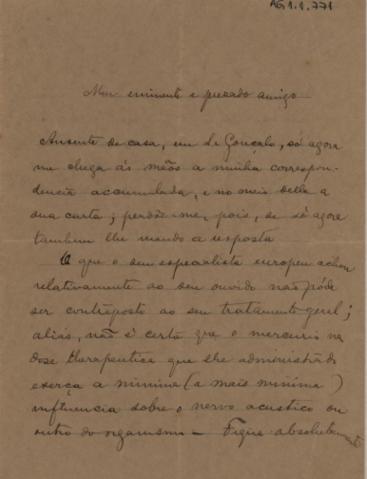 AG1.1.771
Meu eminente e presado amigo
Ausente de casa, em S. Gonçalo, só agora
me chega ás mãos a minha correspon-
dencia accumulada, e no meio della a
sua carta; perdôe-me, pois, se só agora
tambem lhe mando a resposta
O que o seu especialista europeu achou
relativamente ao seu ouvido não póde
ser contraposto ao seu tratamento geral;
aliás, não é certo que o mercurio na
dose therapeutica que lhe administrão
exerça a minima (a mais minima)
influencia sobre o nervo acustico ou
outro do organismo — Fique absolutamente